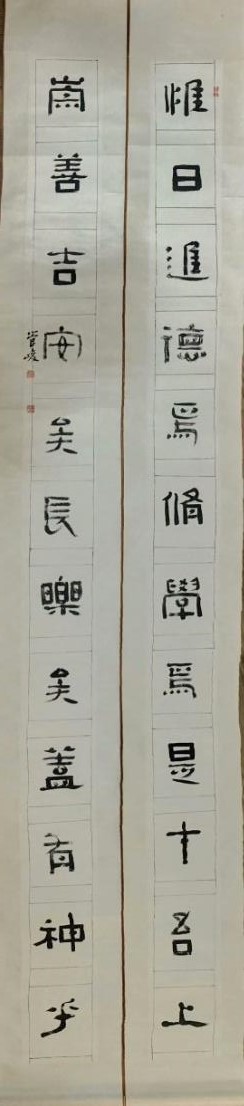 惟日進德焉脩學焉是才吾上
崇善吉安矣長樂矣蓋有神乎
管峻